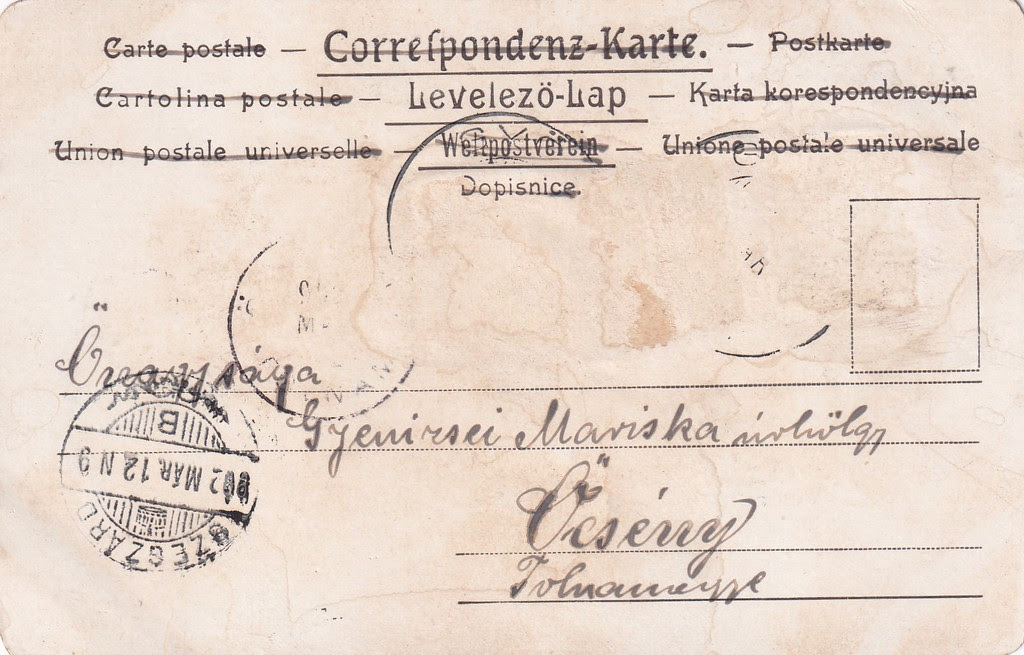 Carte postale — Correſpondenz-Karte. — Postkarte
Cartolina postale — Levelező-Lap — Karta korespondencyjna
Union postale universelle — Weltpostverein — Unione postale universale
Dopisnice.
Őnagysága
Gyenizsei Mariska úrhölgy
Őcsény
Tolnamegye
B
902 MÁR. 12 N 9
SZEGZÁRD